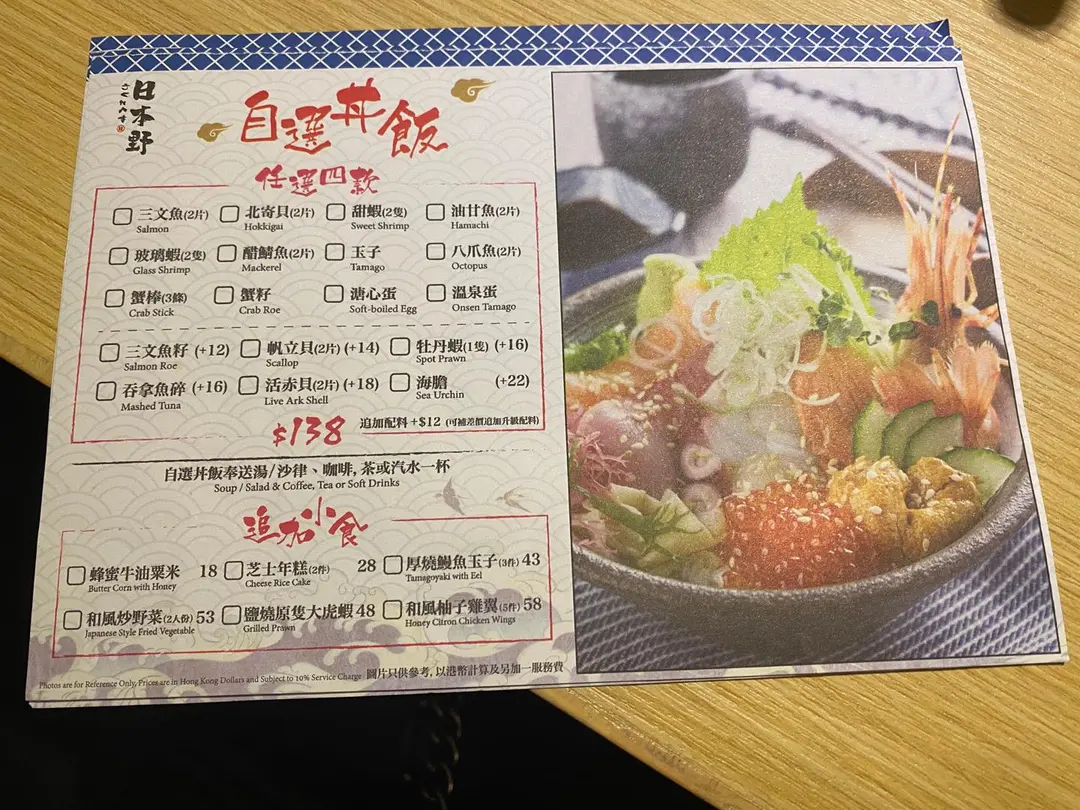 日本野
自選丼飯
任選四款
三文魚(2片) 北寄貝(2片) 甜蝦(2隻) 油甘魚(2片)
Salmon Hokkigai Sweet Shrimp Hamachi
玻璃蝦(2隻) 醋鯖魚(2片) 玉子 八爪魚(2片)
Glass Shrimp Mackerel Tamago Octopus
蟹棒(3條) 蟹籽 溏心蛋 溫泉蛋
Crab Stick Crab Roe Soft-boiled Egg Onsen Tamago
三文魚籽 (+12) 帆立貝(2片) (+14) 牡丹蝦(1隻) (+16)
Salmon Roe Scallop Spot Prawn
吞拿魚碎 (+16) 活赤貝(2片) (+18) 海膽 (+22)
Mashed Tuna Live Ark Shell Sea Urchin
$138 追加配料 +$12 (可補差價追加升級配料)
自選丼飯奉送湯/沙律、咖啡, 茶或汽水一杯
Soup / Salad & Coffee, Tea or Soft Drinks
追加小食
蜂蜜牛油粟米 18 芝士年糕(2件) 28 厚燒鰻魚玉子(3件) 43
Butter Corn with Honey Cheese Rice Cake Tamagoyaki with Eel
和風炒野菜(2人份) 53 鹽燒原隻大虎蝦 48 和風柚子雞翼(5件) 58
Japanese Style Fried Vegetable Grilled Prawn Honey Citron Chicken Wings
Photos are for Reference Only, Prices are in Hong Kong Dollars and Subject to 10% Service Charge 圖片只供參考, 以港幣計算及另加一服務費